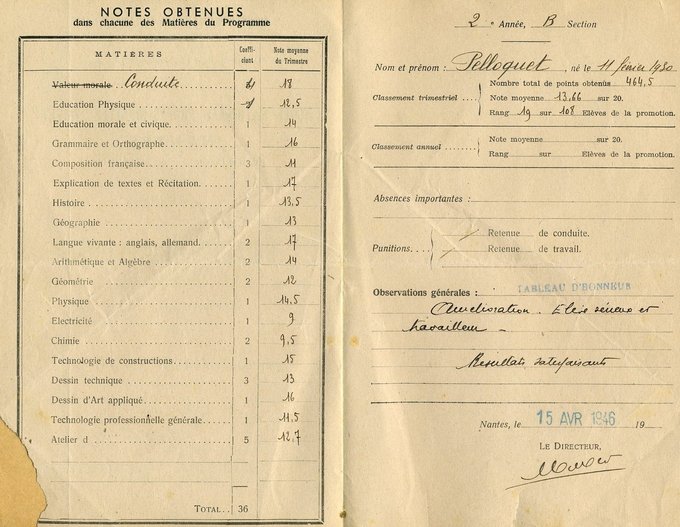 NOTES OBTENUES
dans chacune des Matières du Programme
MATIÈRES Coeffi-cient Note moyenne du Trimestre
Valeur morale Conduite 18
Education Physique 12,5
Education morale et civique 1 14
Grammaire et Orthographe 1 16
Composition française 3 11
Explication de textes et Récitation 1 17
Histoire 1 13.5
Géographie 1 13
Langue vivante : anglais, allemand 2 17
Arithmétique et Algèbre 2 14
Géométrie 2 12
Physique 1 14,5
Electricité 1 9
Chimie 2 9,5
Technologie de constructions 1 15
Dessin technique 3 13
Dessin d'Art appliqué 1 16
Technologie professionnelle générale 1 11,5
Atelier d 5 12,7
TOTAL 36
2e Année, B Section
Nom et prénom : Pelloquet, né le 11 février 1930
Classement trimestriel
Nombre total de points obtenus 464,5
Note moyenne 13,66 sur 20.
Rang 19 sur 108 Elèves de la promotion.
Classement annuel
Note moyenne sur 20.
Rang sur Elèves de la promotion.
Absences importantes :
Punitions
Retenue de conduite.
Retenue de travail.
TABLEAU D'HONNEUR
Observations générales :
Amélioration. Elève sérieux et
travailleur -
Résultats satisfaisants
Nantes, le 15 AVR 1946 19
LE DIRECTEUR,